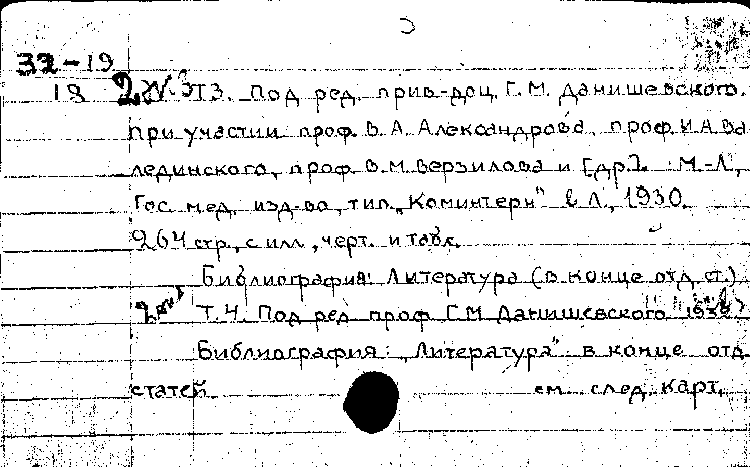 32-19
18 Т 3. Под ред. прив-доц. Г. М. Данишевского.
при участии проф. В. А. Александрова, проф. И. А. Ва
лединского, проф. В. М. Верзилова и [др.]. М.-Л,
Гос. мед. изд-во, тип. „Коминтерн" в Л., 1930.
264 стр., с илл., черт. и табл.
Библиография: Литература (в конце отд. ст.)
Т. 4. Под ред проф. Г. М Данишевского
Библиография: „Литература" в конце отд
статей см. след. карт.